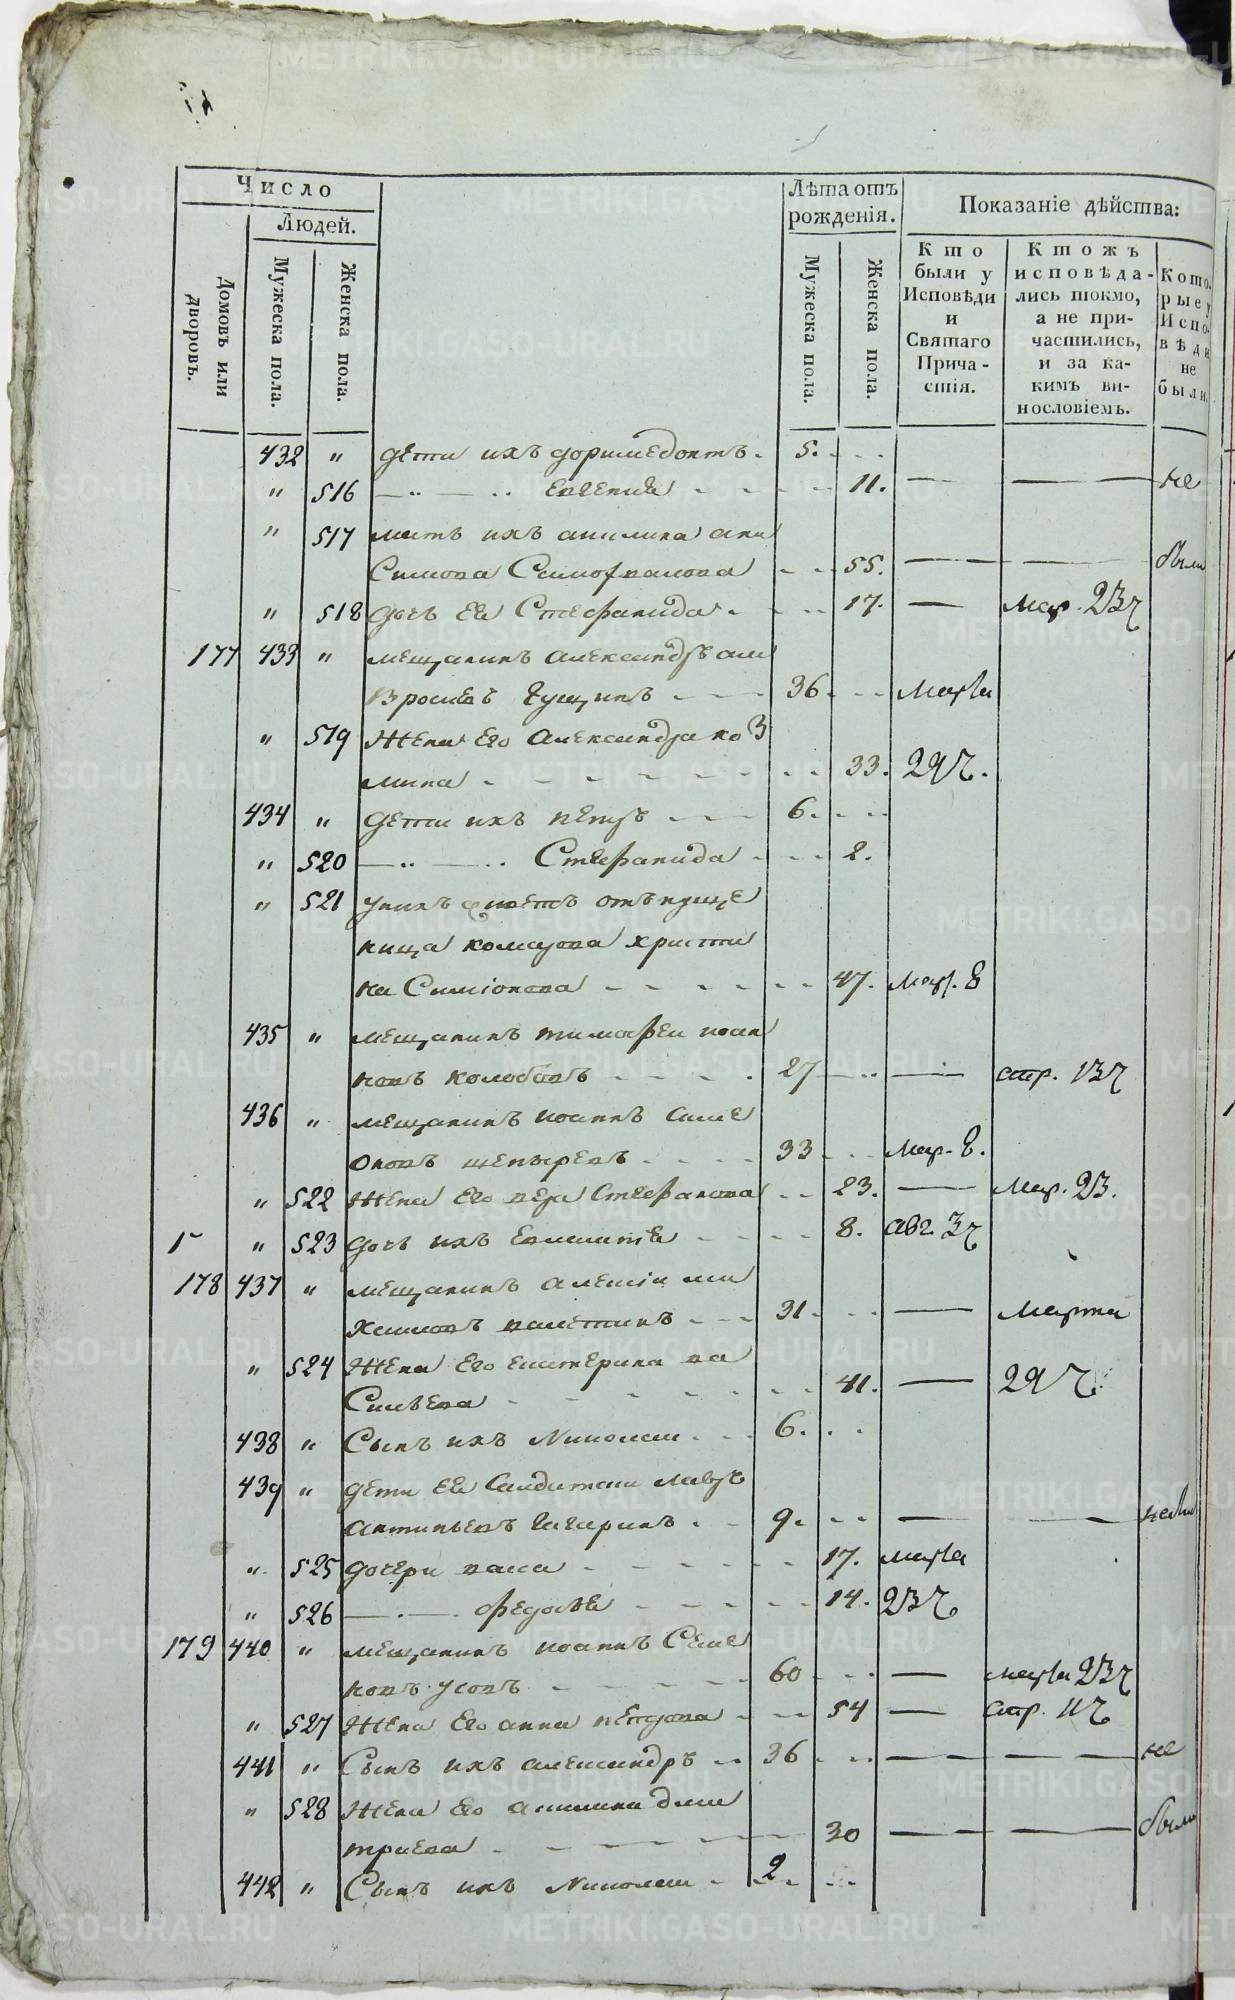 Число
Людей.
Домовъ или дворовъ.
Мужеска пола.
Женска пола.
Лѣта отъ рожденія.
Мужеска пола.
Женска пола.
Показаніе дѣйства:
Кто были у Исповѣди и Святаго Причастія.
Ктожъ исповѣдались токмо, а не причастились, и за какимъ винословіемъ.
Которые у Исповѣди не были.
432 " дети ихъ дормедонтъ. 5.
" 516 — " — Евгения 11. — — не
" 517 мать ихъ акилина ани
симова Самофалова 55. — — были
" 518 дочь ея Стефанида 17. — мар. 23 ч
177 433 " мещанинъ александръ ам
вросиевъ 36 марта
" 519 жена его александра коз
мина 33. 29 ч.
434 " дети ихъ петръ 6.
" 520 — " — Стефанида 2.
" 521 уныхъ живетъ
христи
на Симionова 47. мар. 8
435 " мещанинъ тимофеи иоан
новъ колобовъ 27 — апр. 13 ч
436 " мещанинъ иоаннъ симе
оновъ щепыревъ 33 мар. 8.
" 522 жена его Стефанова 23. — мар. 23.
" 523 дочь ихъ 8. авг 3 ч
178 437 " мещанинъ алексiи ми
хаиловъ налетинъ 31. — марта
" 524 жена его екатерина ва
сильева 41. — 29 ч.
438 " Сынъ ихъ Николаи 6.
439 " дети ея лавръ
антипьевъ 9. — —
" 525 дочери васса 17. марта
" 526 — . — федосья 14. 23 ч
179 440 " мещанинъ иоаннъ Симе
новъ усовъ 60 — марта 23 ч
" 527 жена его анна петрова 54 — апр. 11 ч
441 " Сынъ ихъ александръ 36 — — не
" 528 жена его акилина дми
триева 30 — — были
442 " Сынъ ихъ Николаи 2
METRIKI.GASO-URAL.RU